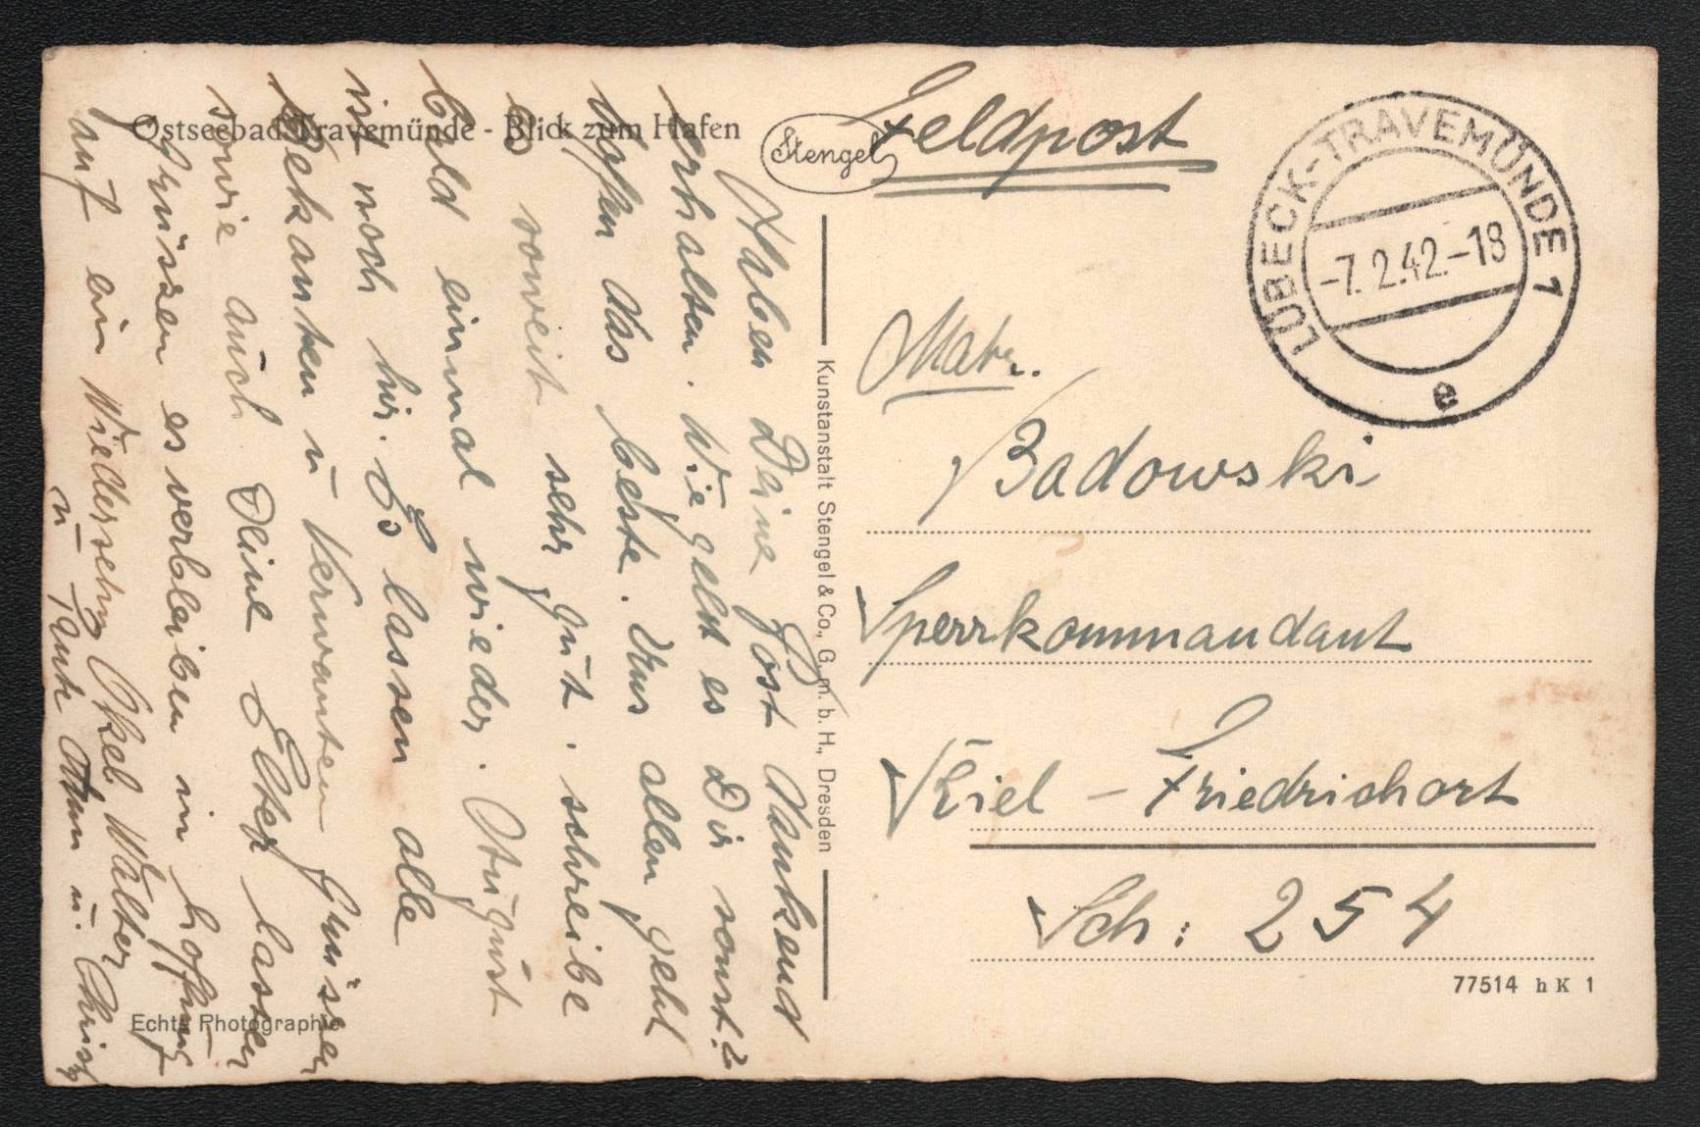 Ostseebad Travemünde - Blick zum Hafen
Stengel
Feldpost
LÜBECK-TRAVEMÜNDE 1
-7.2.42.-18
e
Matr.
Badowski
Sperrkommandant
Kiel - Friedrichort
Sch: 254
77514 h K 1
Kunstanstalt Stengel & Co., G. m. b. H., Dresden
Haben Deine Post dankend
erhalten. Wie geht es Dir sonst?
hofen das beste. Uns allen geht
es soweit sehr gut. schreibe
bald einmal wieder. August
ist noch hir. Es lassen alle
Bekanten u Verwanten grüssen
sowie auch Deine Elter lassen
grüssen es verbleiben in hoffnung
auf ein Wiedersehn Onkel Walter
u Tante Ann u. Christ
Echte Photographie